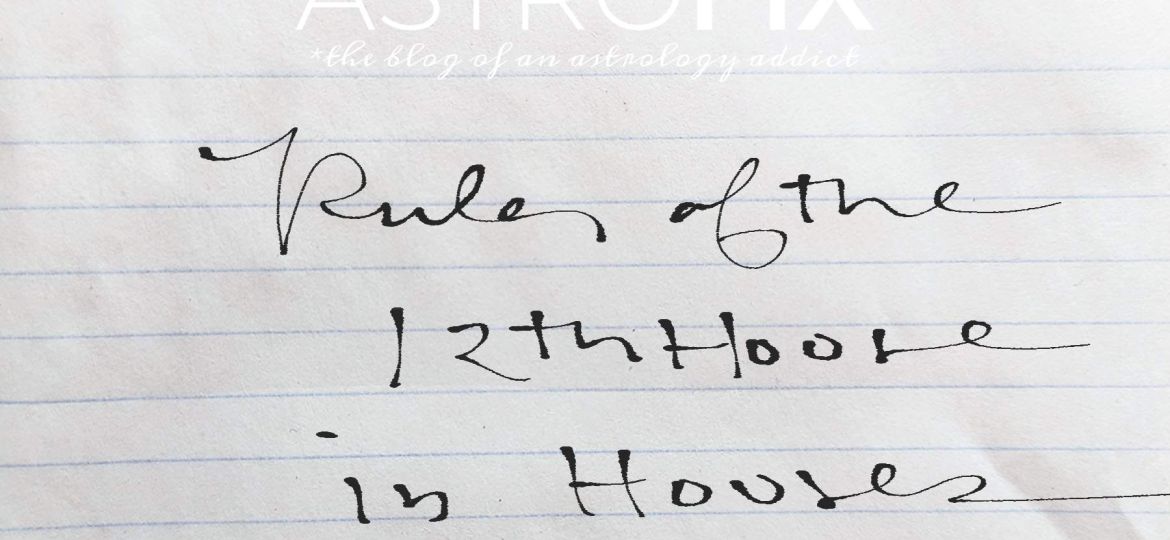 ASTROFIX
*the blog of an astrology addict
Ruler of the
12th House
in Houses